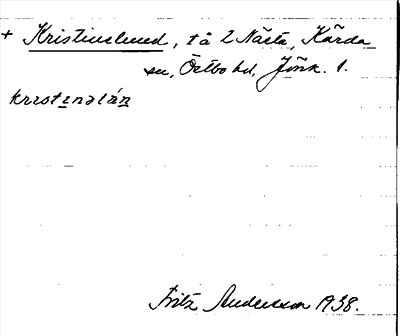 + Kristinelund, tå 2 Nästa, Kärda
sn, Östbo hd, Jönk. l.
krɪstɪnəlán
Fritz Andersson 1938.